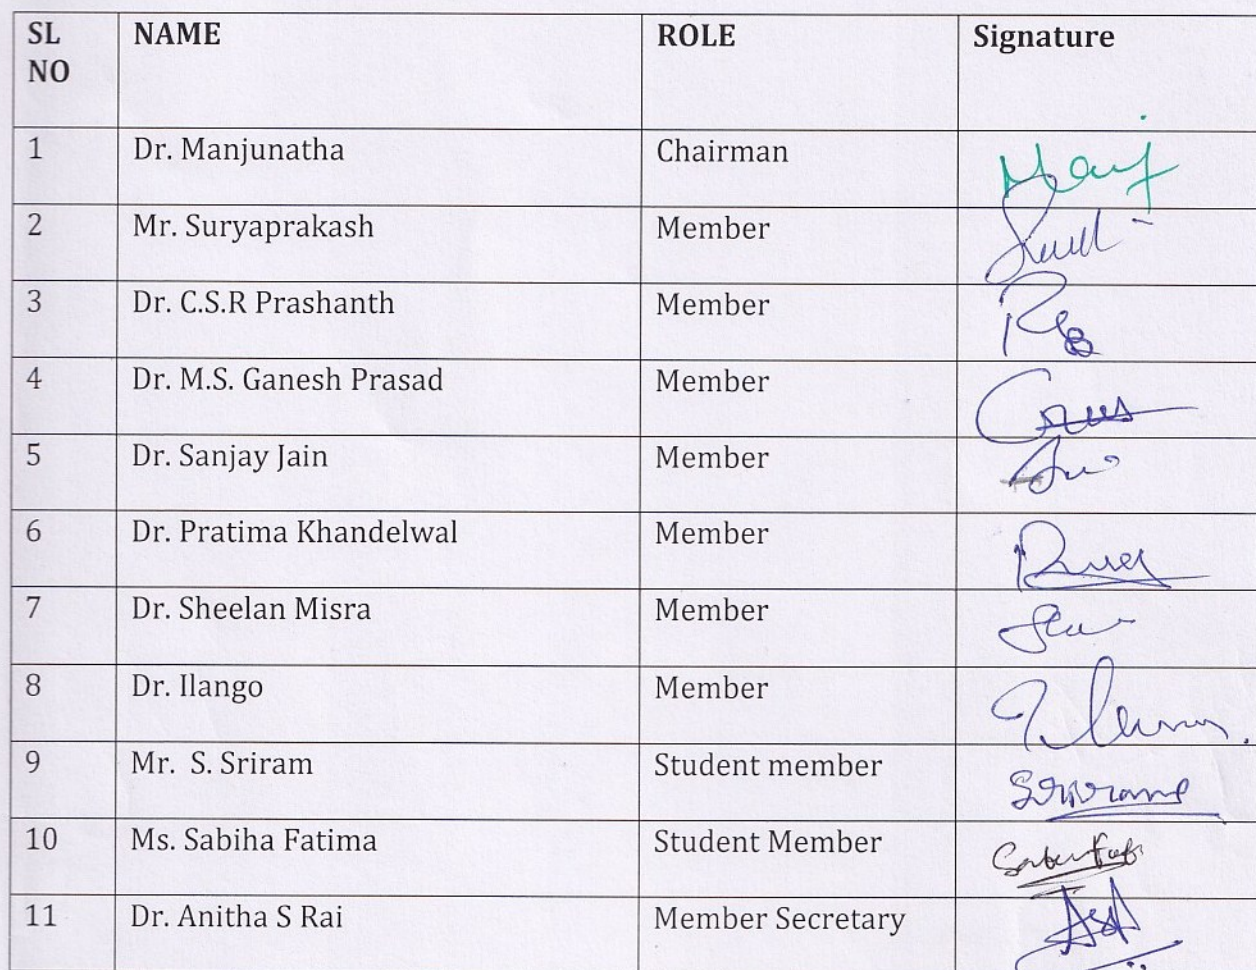 SL NO NAME ROLE Signature
1 Dr. Manjunatha Chairman
2 Mr. Suryaprakash Member
3 Dr. C.S.R Prashanth Member
4 Dr. M.S. Ganesh Prasad Member
5 Dr. Sanjay Jain Member
6 Dr. Pratima Khandelwal Member
7 Dr. Sheelan Misra Member
8 Dr. Ilango Member
9 Mr. S. Sriram Student member
10 Ms. Sabiha Fatima Student Member
11 Dr. Anitha S Rai Member Secretary